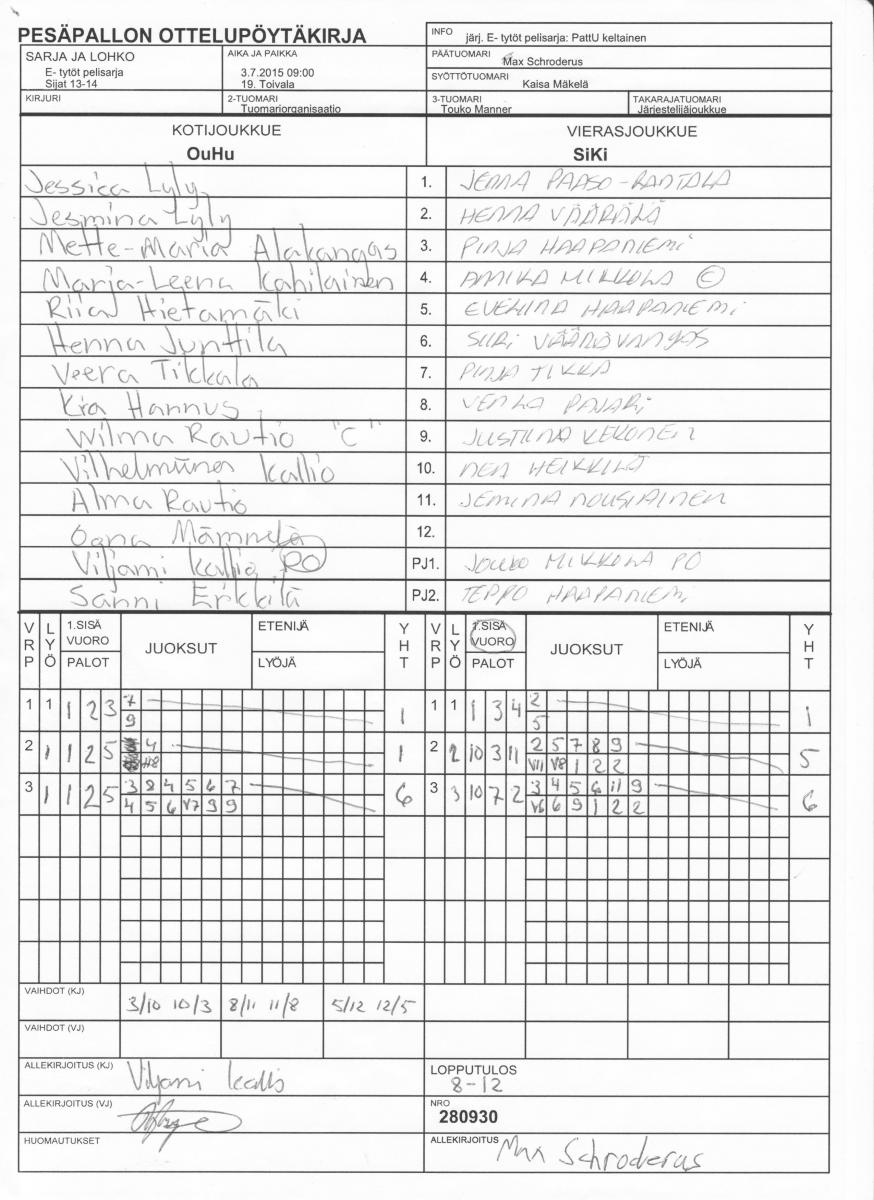 PESÄPALLON OTTELUPÖYTÄKIRJA
INFO järj. E- tytöt pelisarja: PattU keltainen
SARJA JA LOHKO
E- tytöt pelisarja
Sijat 13-14
AIKA JA PAIKKA
3.7.2015 09:00
19. Toivala
PÄÄTUOMARI Max Schroderus
SYÖTTÖTUOMARI Kaisa Mäkelä
KIRJURI
2-TUOMARI
Tuomariorganisaatio
3-TUOMARI
Touko Manner
TAKARAJATUOMARI
Järjestelijäjoukkue
KOTIJOUKKUE VIERASJOUKKUE
OuHu SiKi
Jessica Lyly 1. JENNA PAASO-RANTALA
Jesmina Lyly 2. HENNA VÄÄRÄLÄ
Mette-Maria Alakangas 3. PINJA HAAPANIEMI
Marja-Leena Kahilainen 4. ANNIKA MIKKOLA ©
Riia Hietamäki 5. EVELIINA HAAPANIEMI
Henna Junttila 6. SIIRI VÄÄRÄKANGAS
Veera Tikkala 7. PINJA TIKKA
Kia Hannus 8. VENLA PAJARI
Wilma Rautio "C" 9. JUSTIINA KEKONEN
Vilhelmiina Kallio 10. NEA HEIKKILÄ
Alma Rautio 11. JEMINA NOUSIAINEN
Oona 12.
Viljami Kallio PO PJ1. JOUKO MIKKOLA PO
Sanni Erkkilä PJ2. TEPPO HAAPANIEMI
VRP LYÖ 1.SISÄ VUORO PALOT JUOKSUT ETENIJÄ LYÖJÄ YHT VRP LYÖ 1.SISÄ VUORO PALOT JUOKSUT ETENIJÄ LYÖJÄ YHT
1 1 1 2 3 7 1 1 1 1 3 4 2 1
9 5
2 1 1 2 5 4 1 2 2 10 3 11 2 5 7 8 9 5
H8 VII V8 1 2 2
3 1 1 2 5 3 8 4 5 6 7 6 3 3 10 7 2 3 4 5 6 11 9 6
4 5 6 V7 9 9 V6 6 9 1 2 2
VAIHDOT (KJ) 3/10 10/3 8/11 11/8 5/12 12/5
VAIHDOT (VJ)
ALLEKIRJOITUS (KJ) Viljami Kallio
LOPPUTULOS
8-12
ALLEKIRJOITUS (VJ)
NRO
280930
HUOMAUTUKSET
ALLEKIRJOITUS Max Schroderus